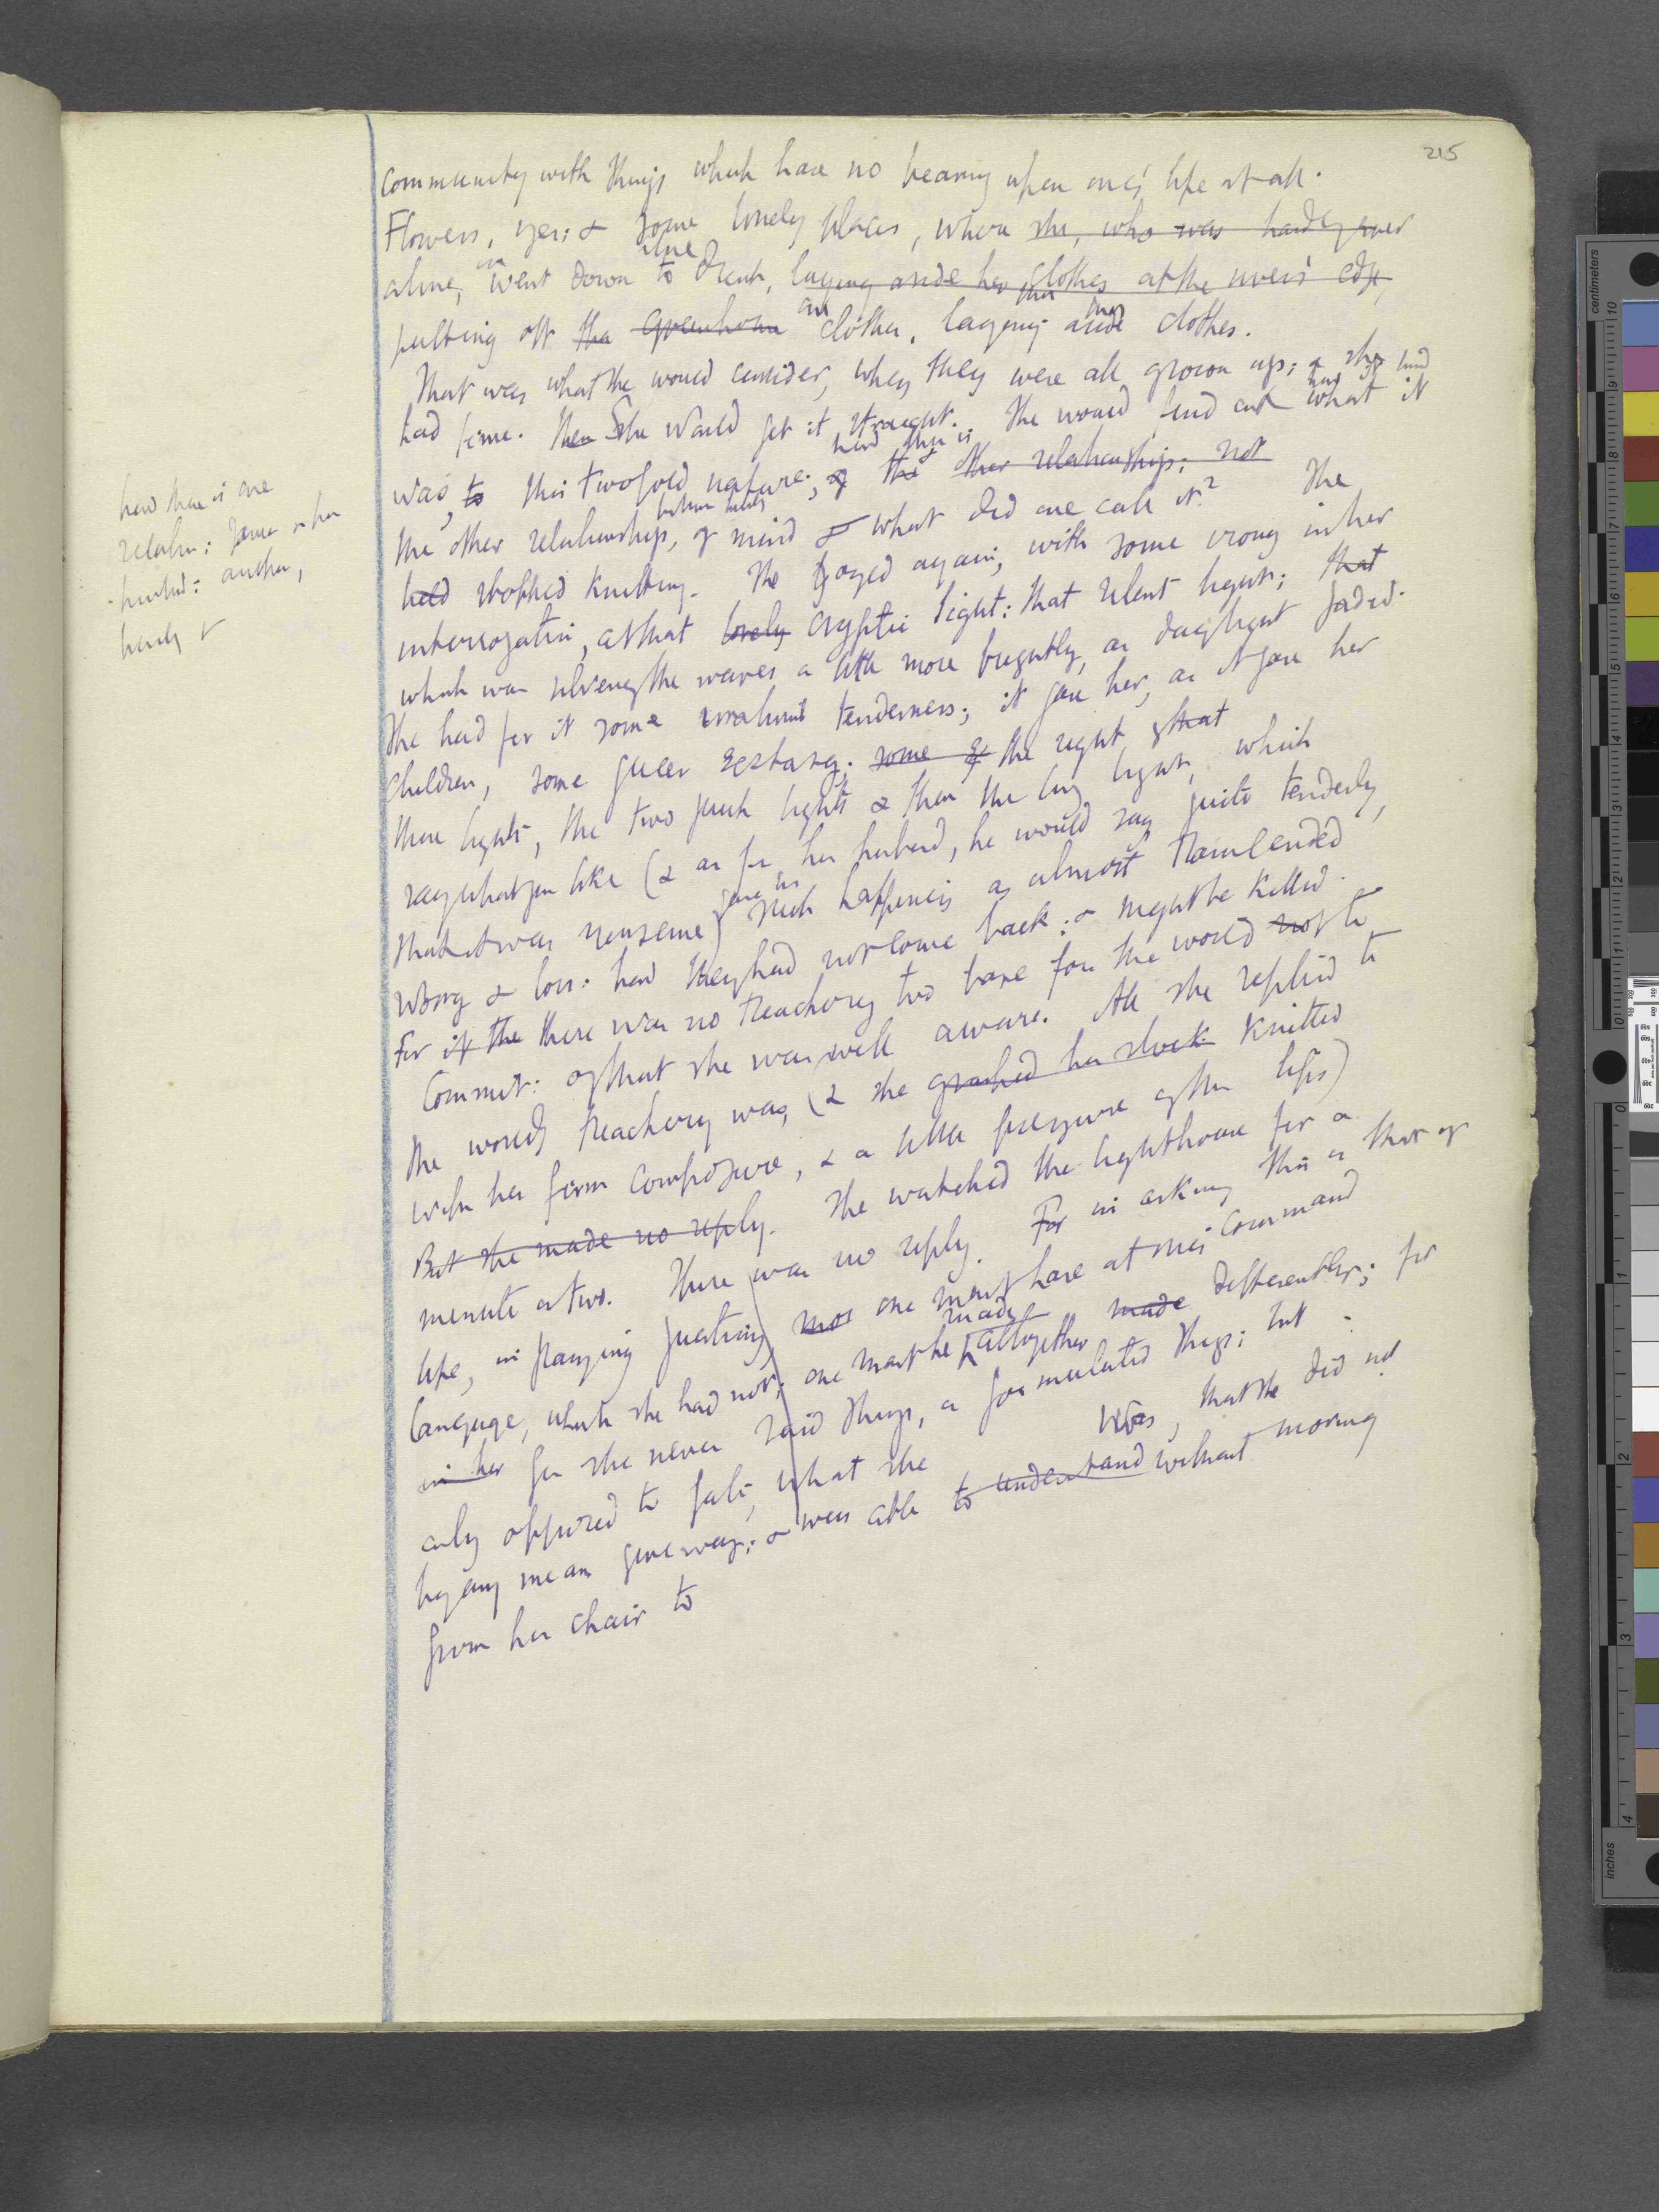 215
community with things which have no bearing upon one's life at all.
Flowers, yes; & some lonely places, where she, who was hardly ever
alone, went down to drink, laying aside her clothes at the river's edge,
alone
putting off the clothes, laying aside clothes.
That was what she would consider, when they were all grown up; & she had
had time. Then She would get it straight. She would find out what it
was, to this twofold nature; of the other relationship; not
how there is
the other relationship, of mind & what did one call it? She
between
had stopped knitting. She gazed again, with some irony in her
interrogation, at that lovely cryptic light: that silent light; that
which was silvering the waves a little more brightly, as daylight faded.
She had for it some irrational tenderness; it gave her, as it gave her
children, some queer ecstasy; some of the sight of that
three lights, the two quick lights & then the long light, which
say what you like (& as for her husband, he would say quite tenderly,
that it was nonsense) such happiness as almost transcended
gave us
wrong & loss: how they had not come back: & might be killed.
For if the there was no treachery too base for the world not to
commit: of that she was well aware. All she replied to
the world's treachery was, (& she grasped her stock knitted
with her firm composure, & a little pressure of the lips)
But she made no reply. She watched the lighthouse for a
minute or two. There was no reply. For in asking this or that of
life, in framing questions, one must have at one's command
language, which she had not; one must be altogether made differently; for
made
in her for she never said things, or formulated things; but
only opposed to fate, what she was, that she did not
by any means give way; & was able to understand without moving
from her chair to
how there is one
relation: James & her
husband: another,